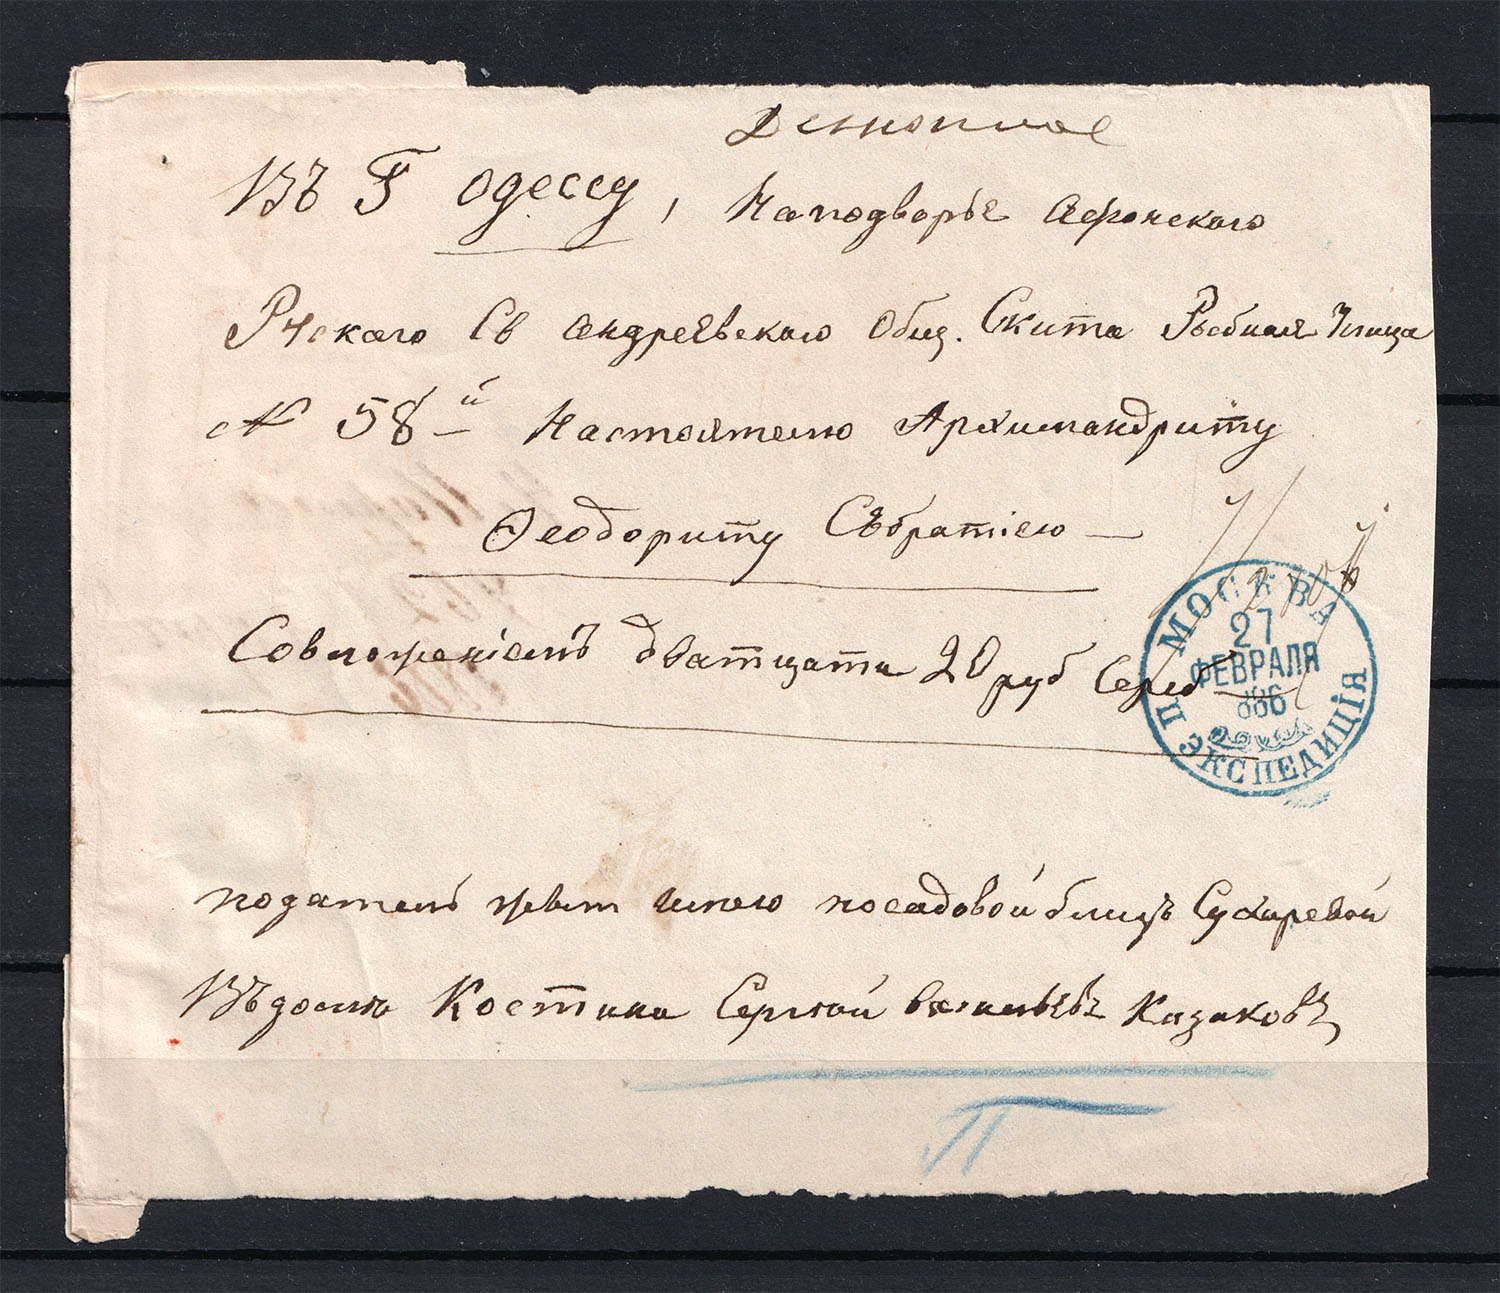 Денежное
Въ Г Одессу, Наподворье Афонскаго
Рускаго Св Андреевскаго Общ. Скита Рыбная Улица
№ 58-й Настоятелю Архимандриту
Феодориту Събратіею —
Совложеніемъ дватцати 20 руб Сереб
МОСКВА
27
ФЕВРАЛЯ
1886
П ЭКСПЕДИЦІЯ
податель живт посадовой близъ Сухаревой
Въдоме Костина Сергѣй Васильевъ Казаковъ
П